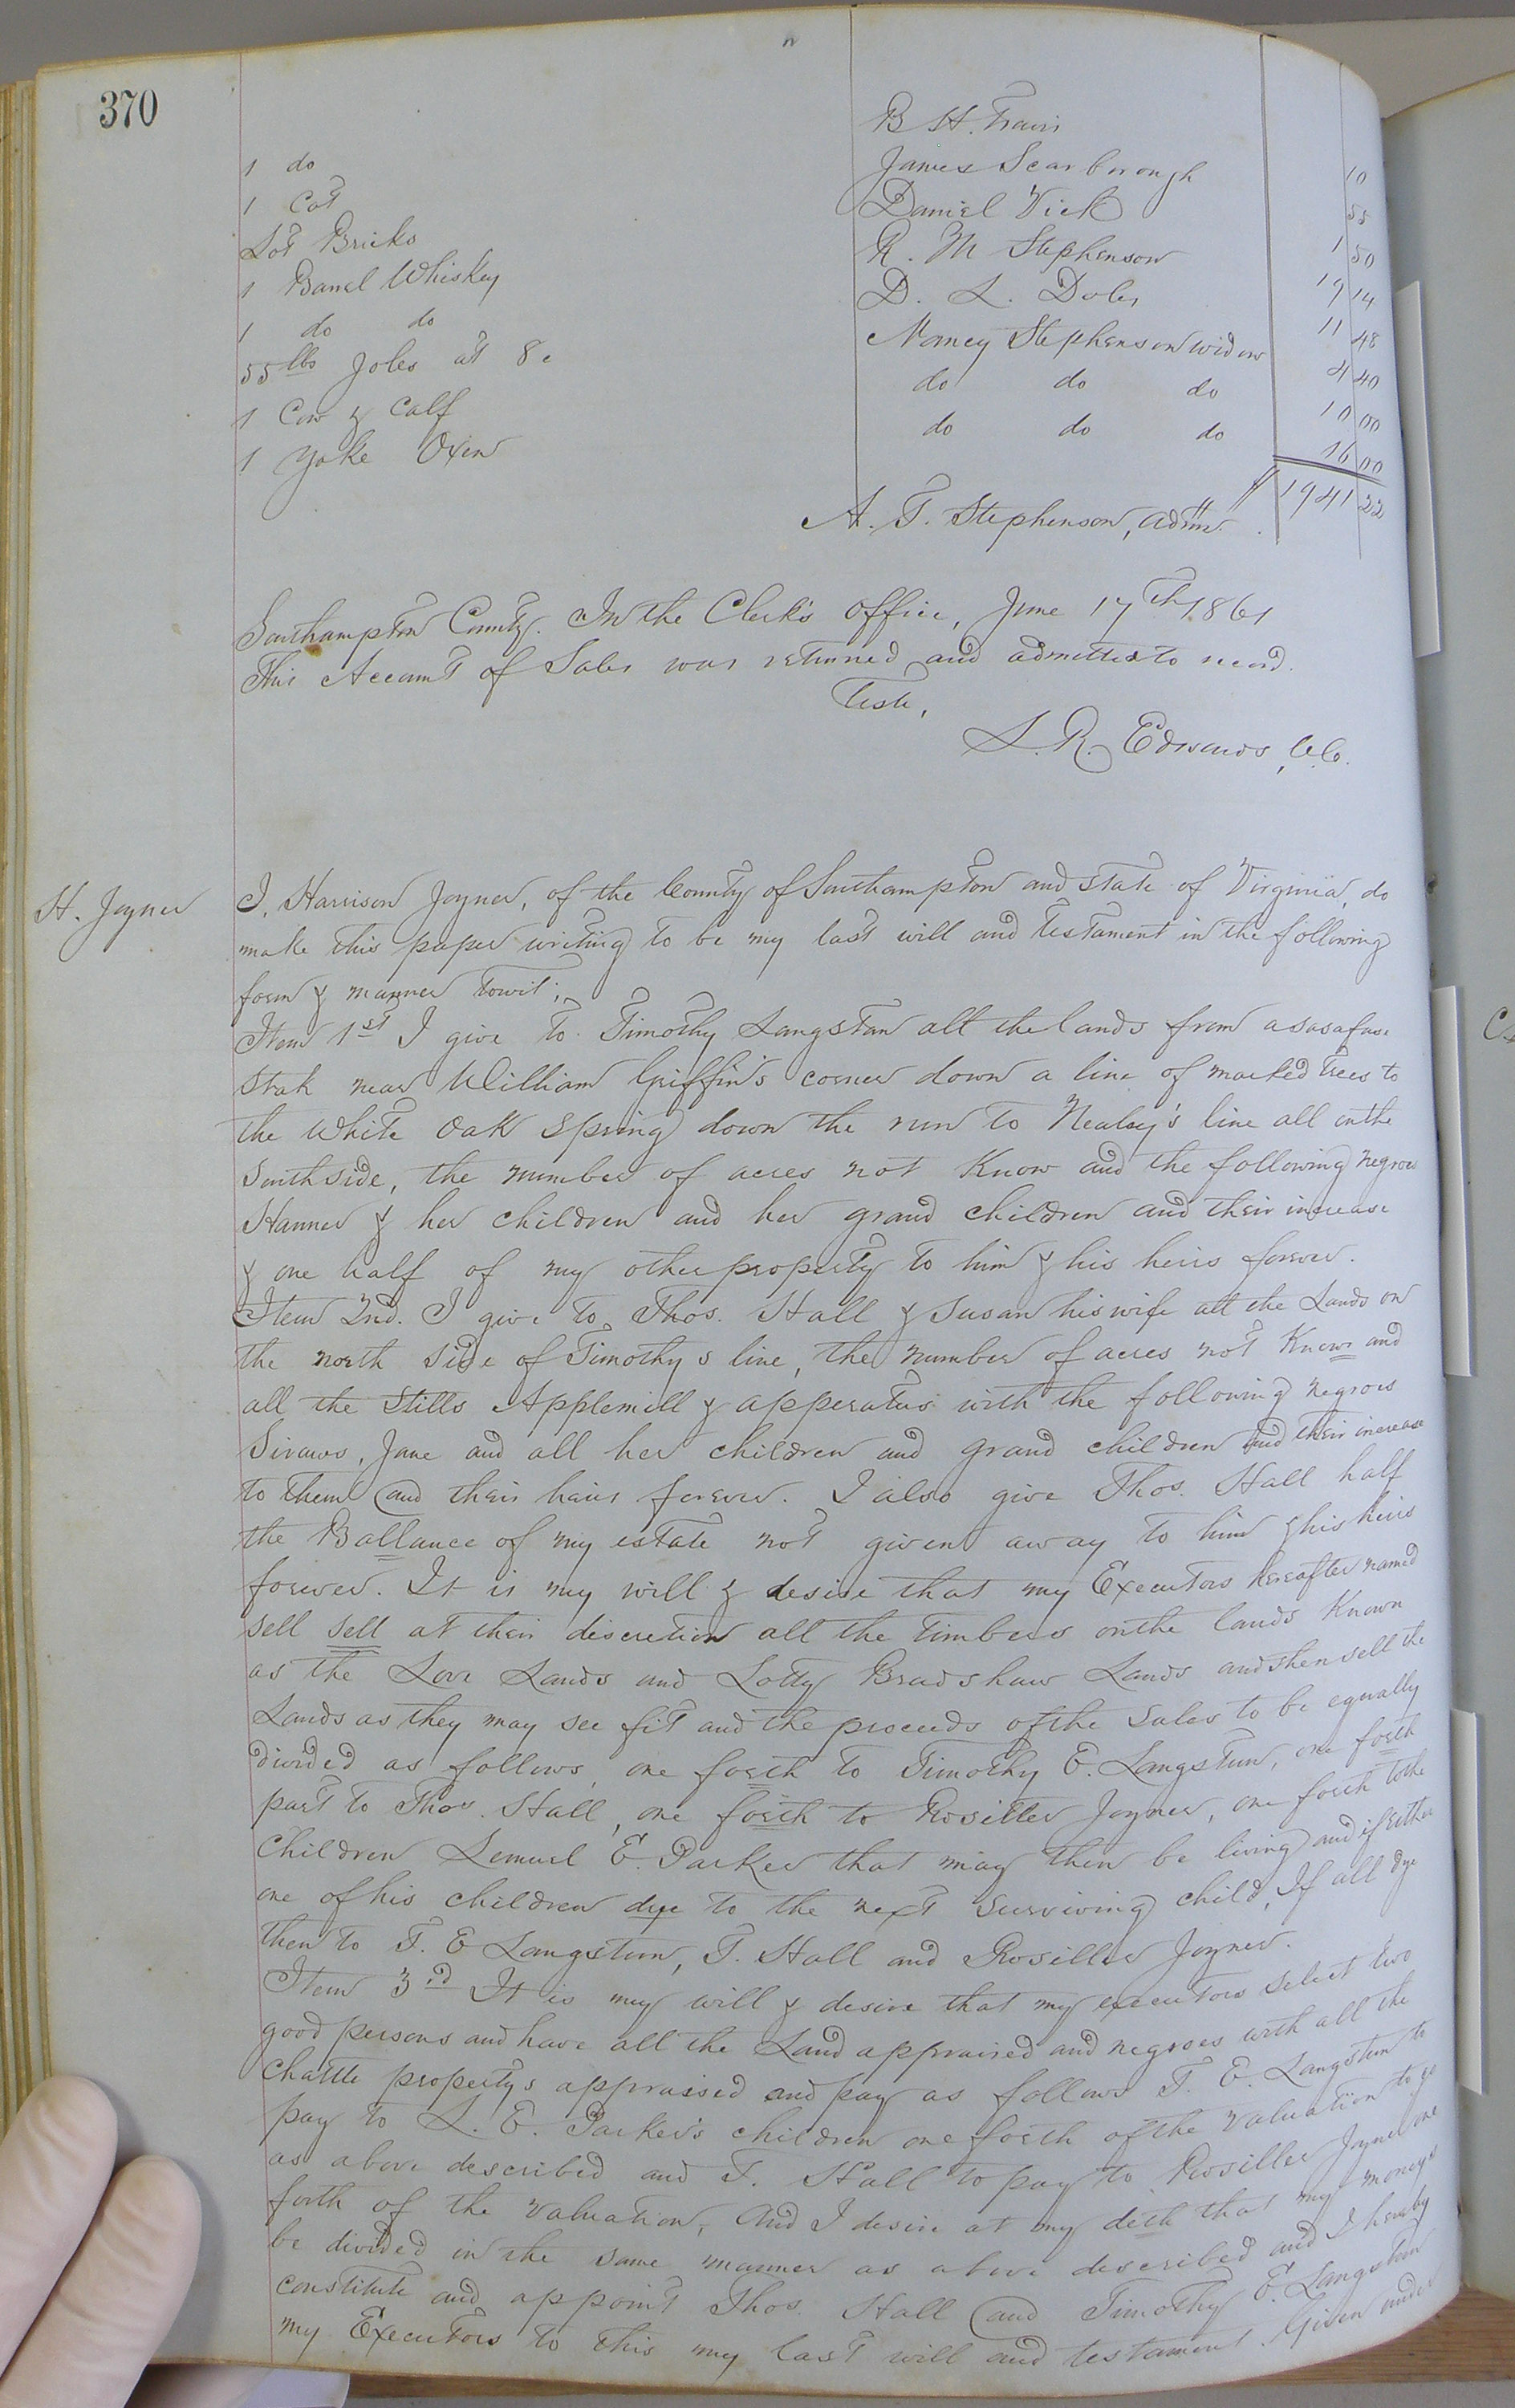 370
1 do B. H. Travis 10
1 Cot James Scarborough 55
Lot Bricks Daniel Vick 1 50
1 Barrel Whiskey R. M Stephenson 19 14
1 do do D. L. Doles 11 48
55 lbs Joles at 8c Nancy Stephenson widow 4 40
1 Cow & Calf do do do 10 00
1 Yoke Oxen do do do 16 00
A. T. Stephenson, admr. 1941 22
Southampton County. In the Clerk's Office, June 17th 1861
This Account of Sales was returned and admitted to record.
Teste,
L. R. Edwards, C.C.
H. Joyner
I, Harrison Joyner, of the County of Southampton and state of Virginia, do
make this paper writing to be my last will and testament in the following
form & manner towit;
Item 1st I give to Timothy Langston all the lands from a sasafrass
stak near William Griffin's corner down a line of marked trees to
the White Oak Spring down the run to Nealey's line all on the
South side, the number of acres not Know and the following negroes
Hanner & her children and her grand children and their increase
& one half of my other property to him & his heirs forever.
Item 2nd. I give to Thos. Hall & Susan his wife all the Lands on
the north side of Timothy's line, the number of acres not Know and
all the Stills Applemill & apperatus with the following negroes
Jane and all her children and grand children and their increase
to them and their heirs forever. I also give Thos. Hall half
the Ballance of my estate not given away to him & his heirs
forever. It is my will & desire that my Executors hereafter named
sell sell at their discretion all the timbers on the lands Known
as the Love Lands and Lotty Bradshaw Lands and then sell the
Lands as they may see fit and the proceeds of the sales to be equally
divided as follows, one forth to Timothy E. Langston, one forth
part to Thos. Hall, one forth to Rosiller Joyner, one forth to the
Children Lemuel E. Parker that may then be living and if either
one of his children dye to the next surviving child, If all dye
then to T. E Langston, T. Hall and Rosiller Joyner.
Item 3rd It is my will & desire that my executors select two
good persons and have all the Land appraised and negroes with all the
Chattle propertys appraised and pay as follows T. E. Langston to
pay to L. E. Parker's children one forth of the valuation to go
as above described and T. Hall to pay to Rosiller Joyner one
forth of the valuation, And I desire at my deth that my moneys
be divided in the same manner as above described and I hereby
constitute and appoint Thos. Hall and Timothy E. Langston
my Executors to this my last will and testament. Given under